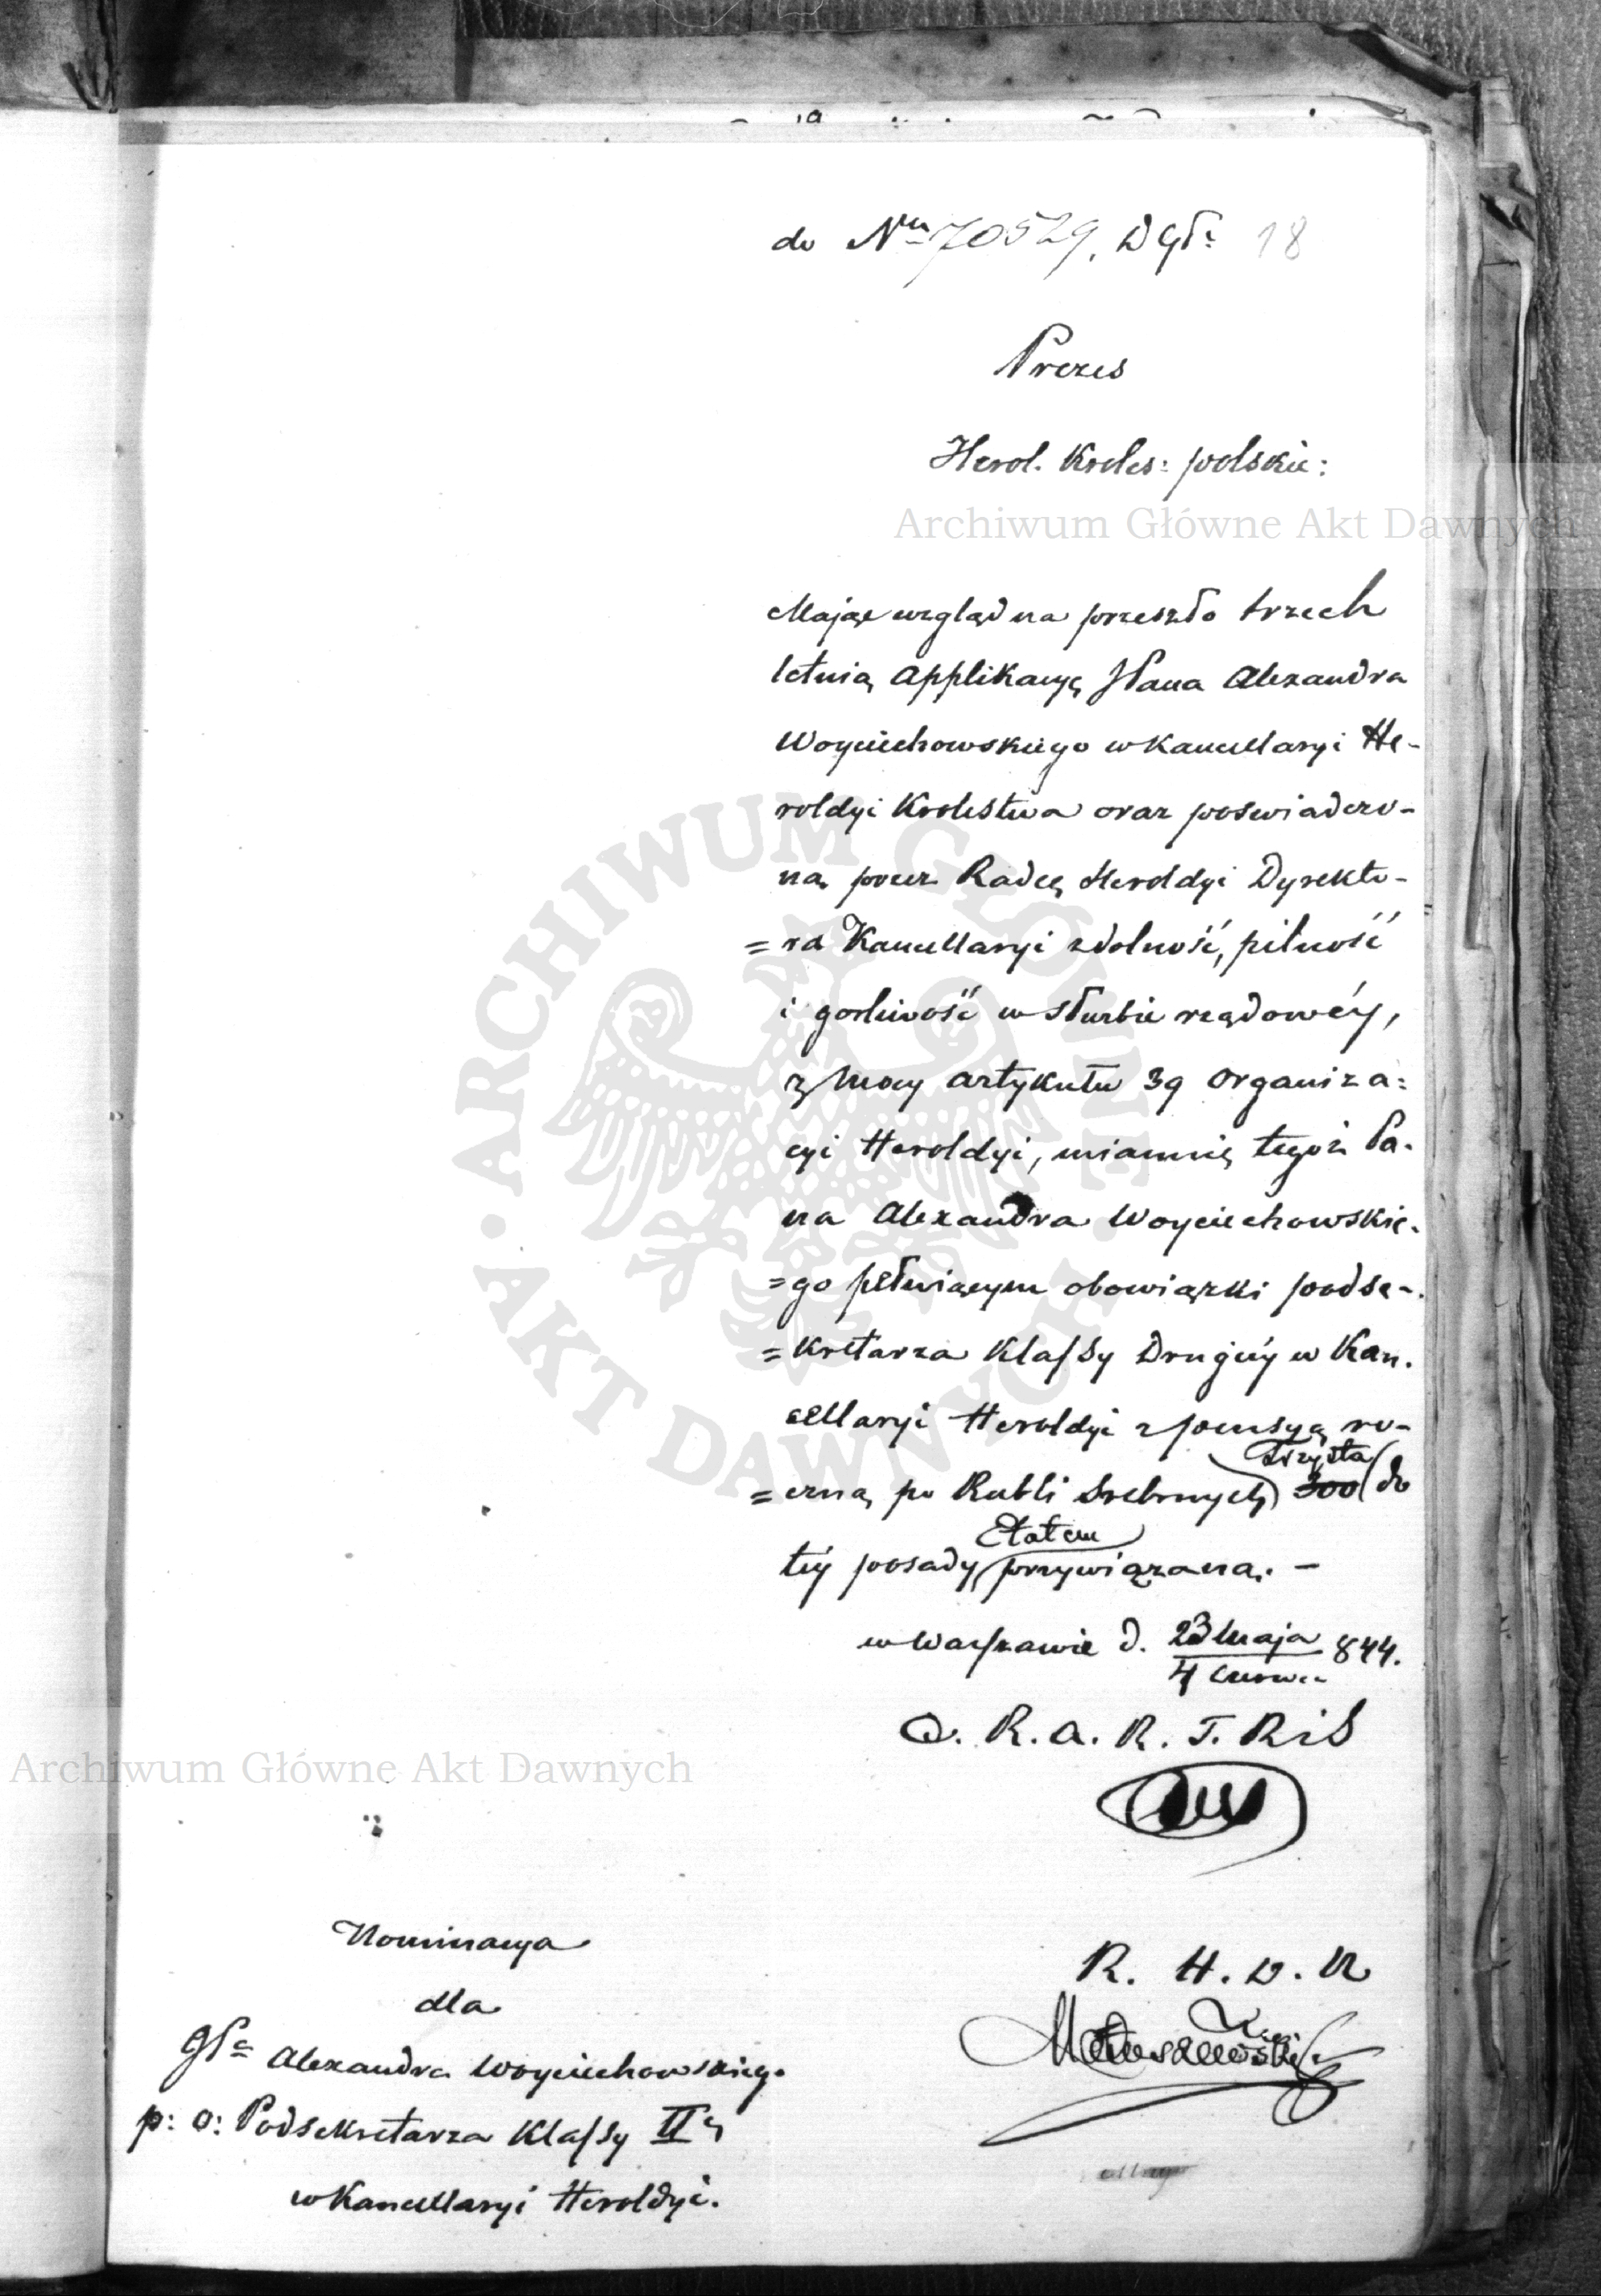 do Nru 70529. D Gł: 18
Prezes
Herol. Króles: polskie:
Archiwum Główne Akt Dawnych
Mając wzgląd na przeszło trzech
letnią Applikacyą JPana Alexandra
Woyciechowskiego w Kancellaryi He-
roldyi Krolestwa oraz poswiadczo-
ną przez Radcę Heroldyi Dyrekto-
=ra Kancellaryi zdolność, pilność
i gorliwość w służbie rządowéy,
z mocy artykułu 39 Organiza:
cyi Heroldyi, mianuię tegoż Pa-
na Alexandra Woyciechowskie-
=go pełniącym obowiązki podse-
=kretarza Klassy Drugiéy w Kan-
cellaryi Heroldyi z pensyą ro-
trzysta
=czną po Rubli Srebrnych 300 do
Etatem
téy posady przywiązaną. —
w Warszawie d. 23 Maja 844.
4 Czerwca
O. R. A. R. T. R i S
Nominacya
dla
JPa Alexandra Woyciechowskiego
p: o: Podsekretarza Klassy IIéy
w Kancellaryi Heroldyi.
R. H. D. K
ARCHIWUM GŁÓWNE AKT DAWNYCH
Archiwum Główne Akt Dawnych